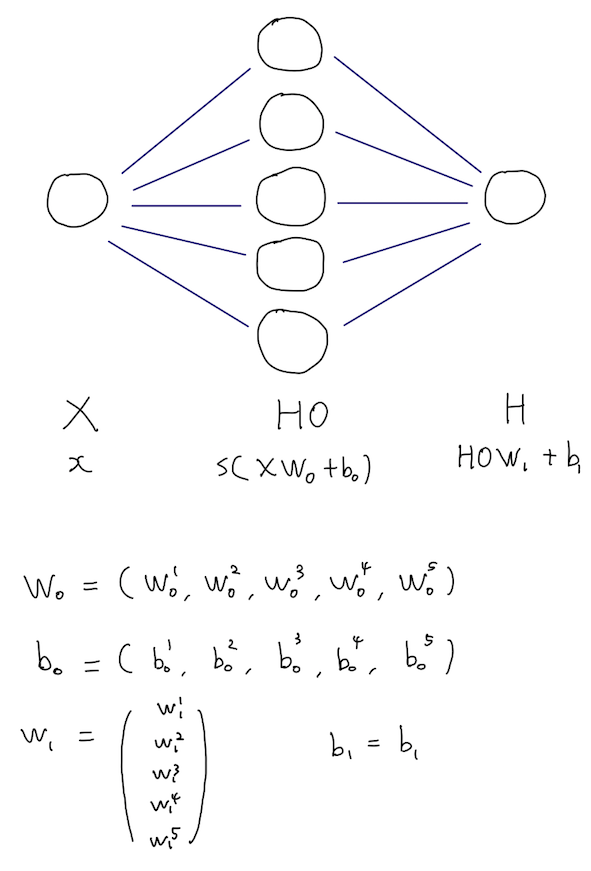 X H0 H
x s(XW₀+b₀) H0W₁+b₁
W₀ = (W₀¹, W₀², W₀³, W₀⁴, W₀⁵)
b₀ = (b₀¹, b₀², b₀³, b₀⁴, b₀⁵)
W₁ = (W₁¹
W₁²
W₁³
W₁⁴
W₁⁵) b₁ = b₁